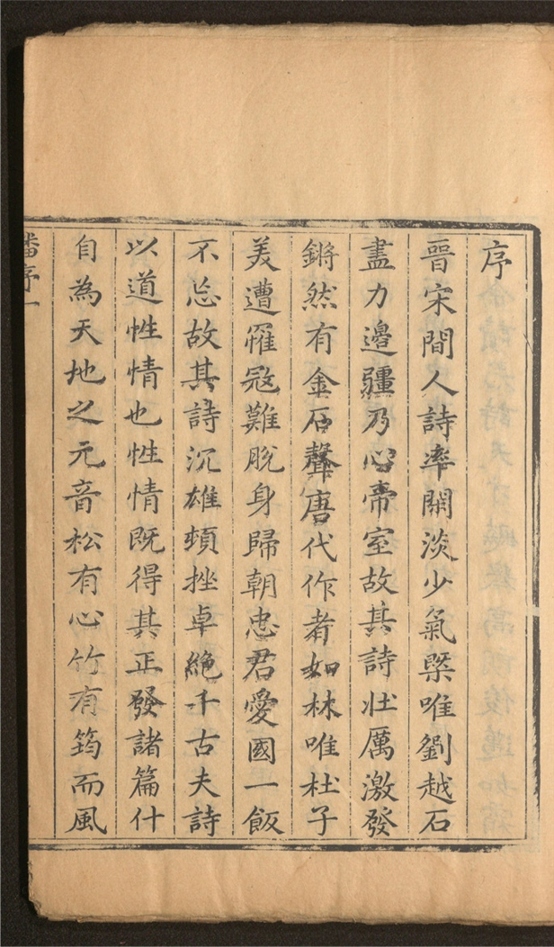 序
晉宋間人詩率閑淡少氣槩唯劉越石
盡力邊疆乃心帝室故其詩壯厲激發
鏘然有金石聲唐代作者如林唯杜子
美遭罹冦難脫身歸朝忠君愛國一飯
不忘故其詩沉雄頓挫卓絶千古夫詩
以道性情也性情既得其正發諸篇什
自為天地之元音松有心竹有筠而風
序一